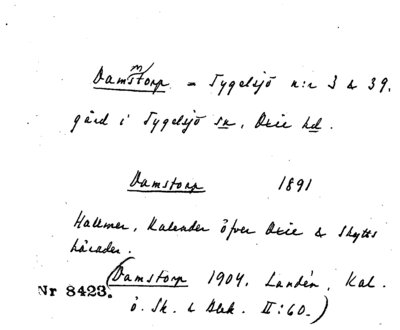 m/
Damstorp = Tygelsjö n:r 3 & 39.
gård i Tygelsjö sn, Oxie hd.
Damstorp 1891
Hallmer, Kalender öfver Oxie & Skytts
härader.
(Damstorp 1904. Landén, Kal.
Nr 8423. ö. Sk. & Blek. II:60.)